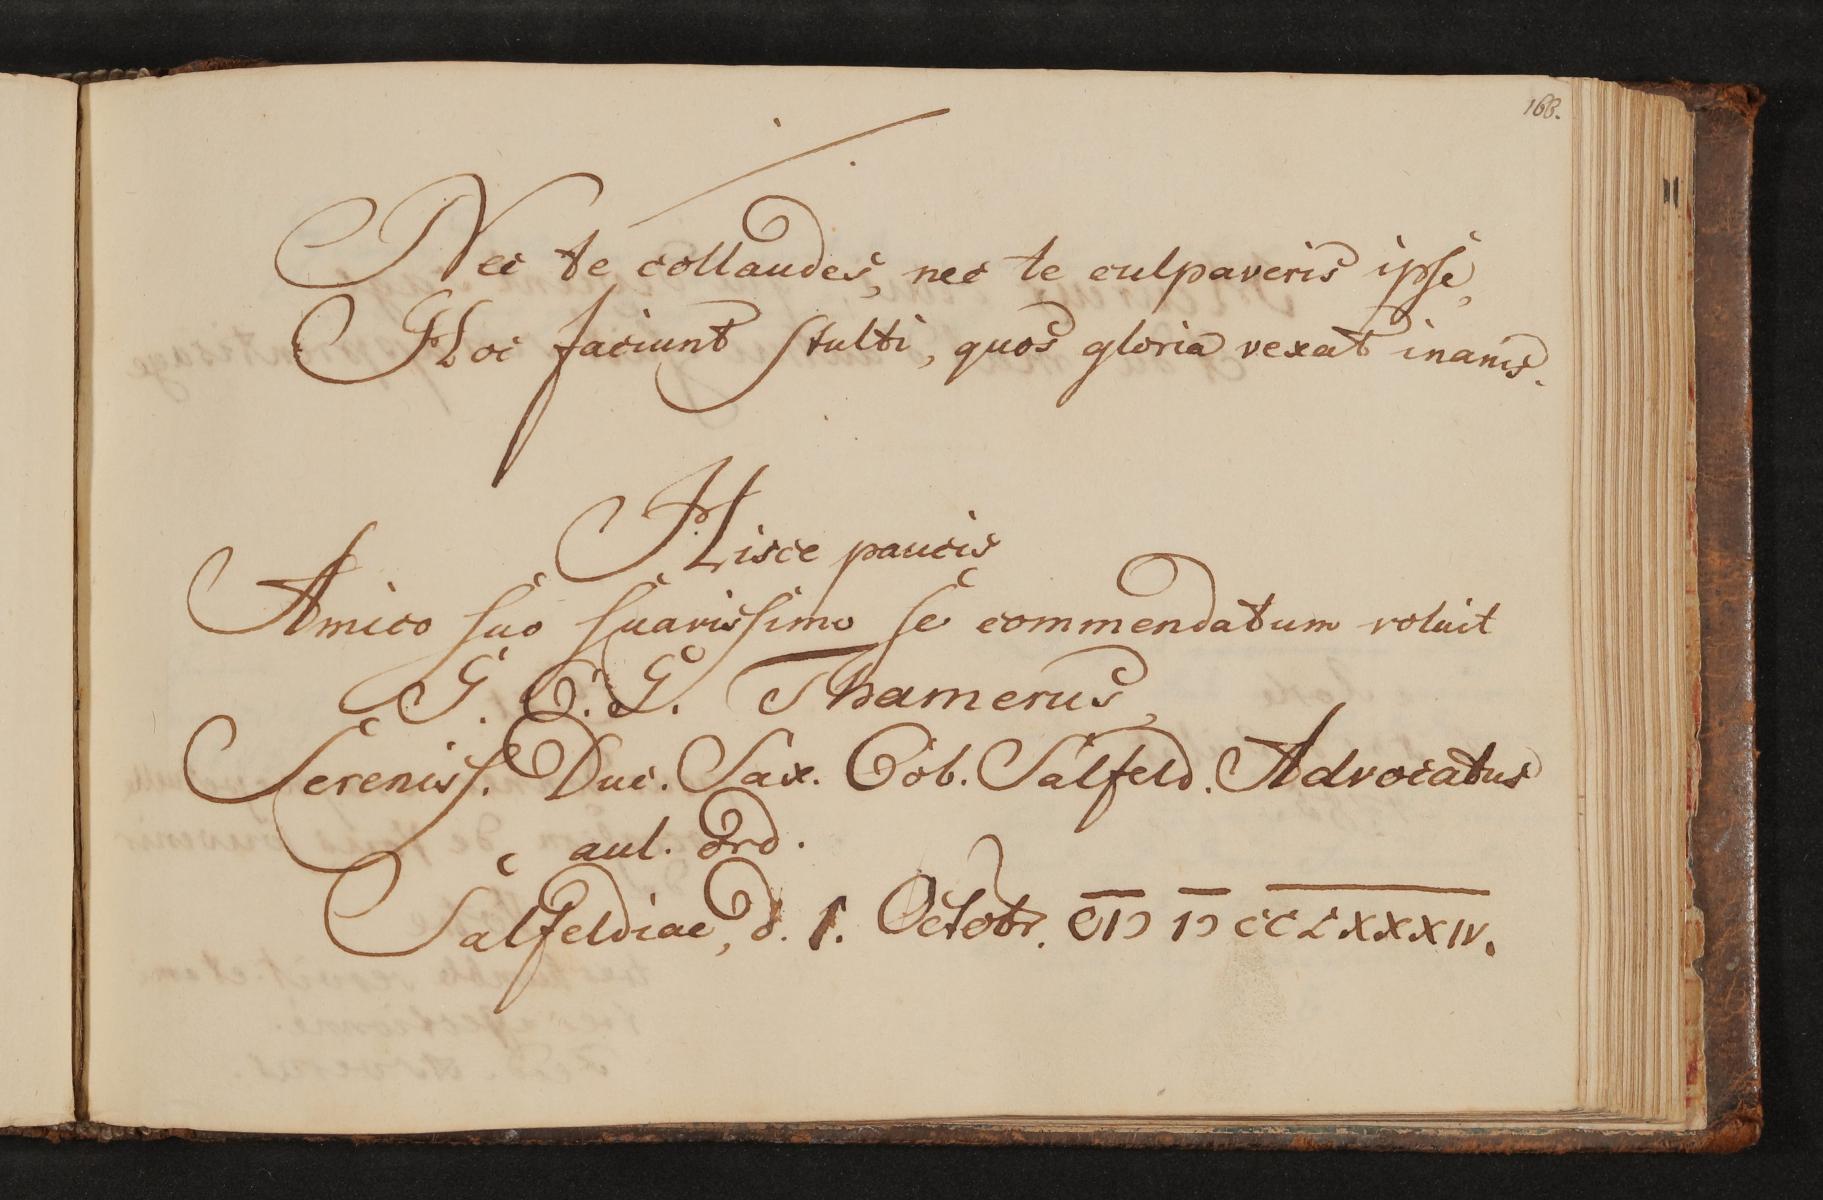 168.
Nec te collaudes, nec te culpaveris ipse,
Hoc faciunt stulti, quos gloria vexat inanis.
Hisce paucis
Amico suo suavissimo se commendatum voluit
G. C. G. Thamerus,
Sereniss. Duc. Sax. Cob. Salfeld. Advocatus
aul. ord.
Salfeldiae, d. 1. Octobr. CIƆ IƆ CCLXXXIV.